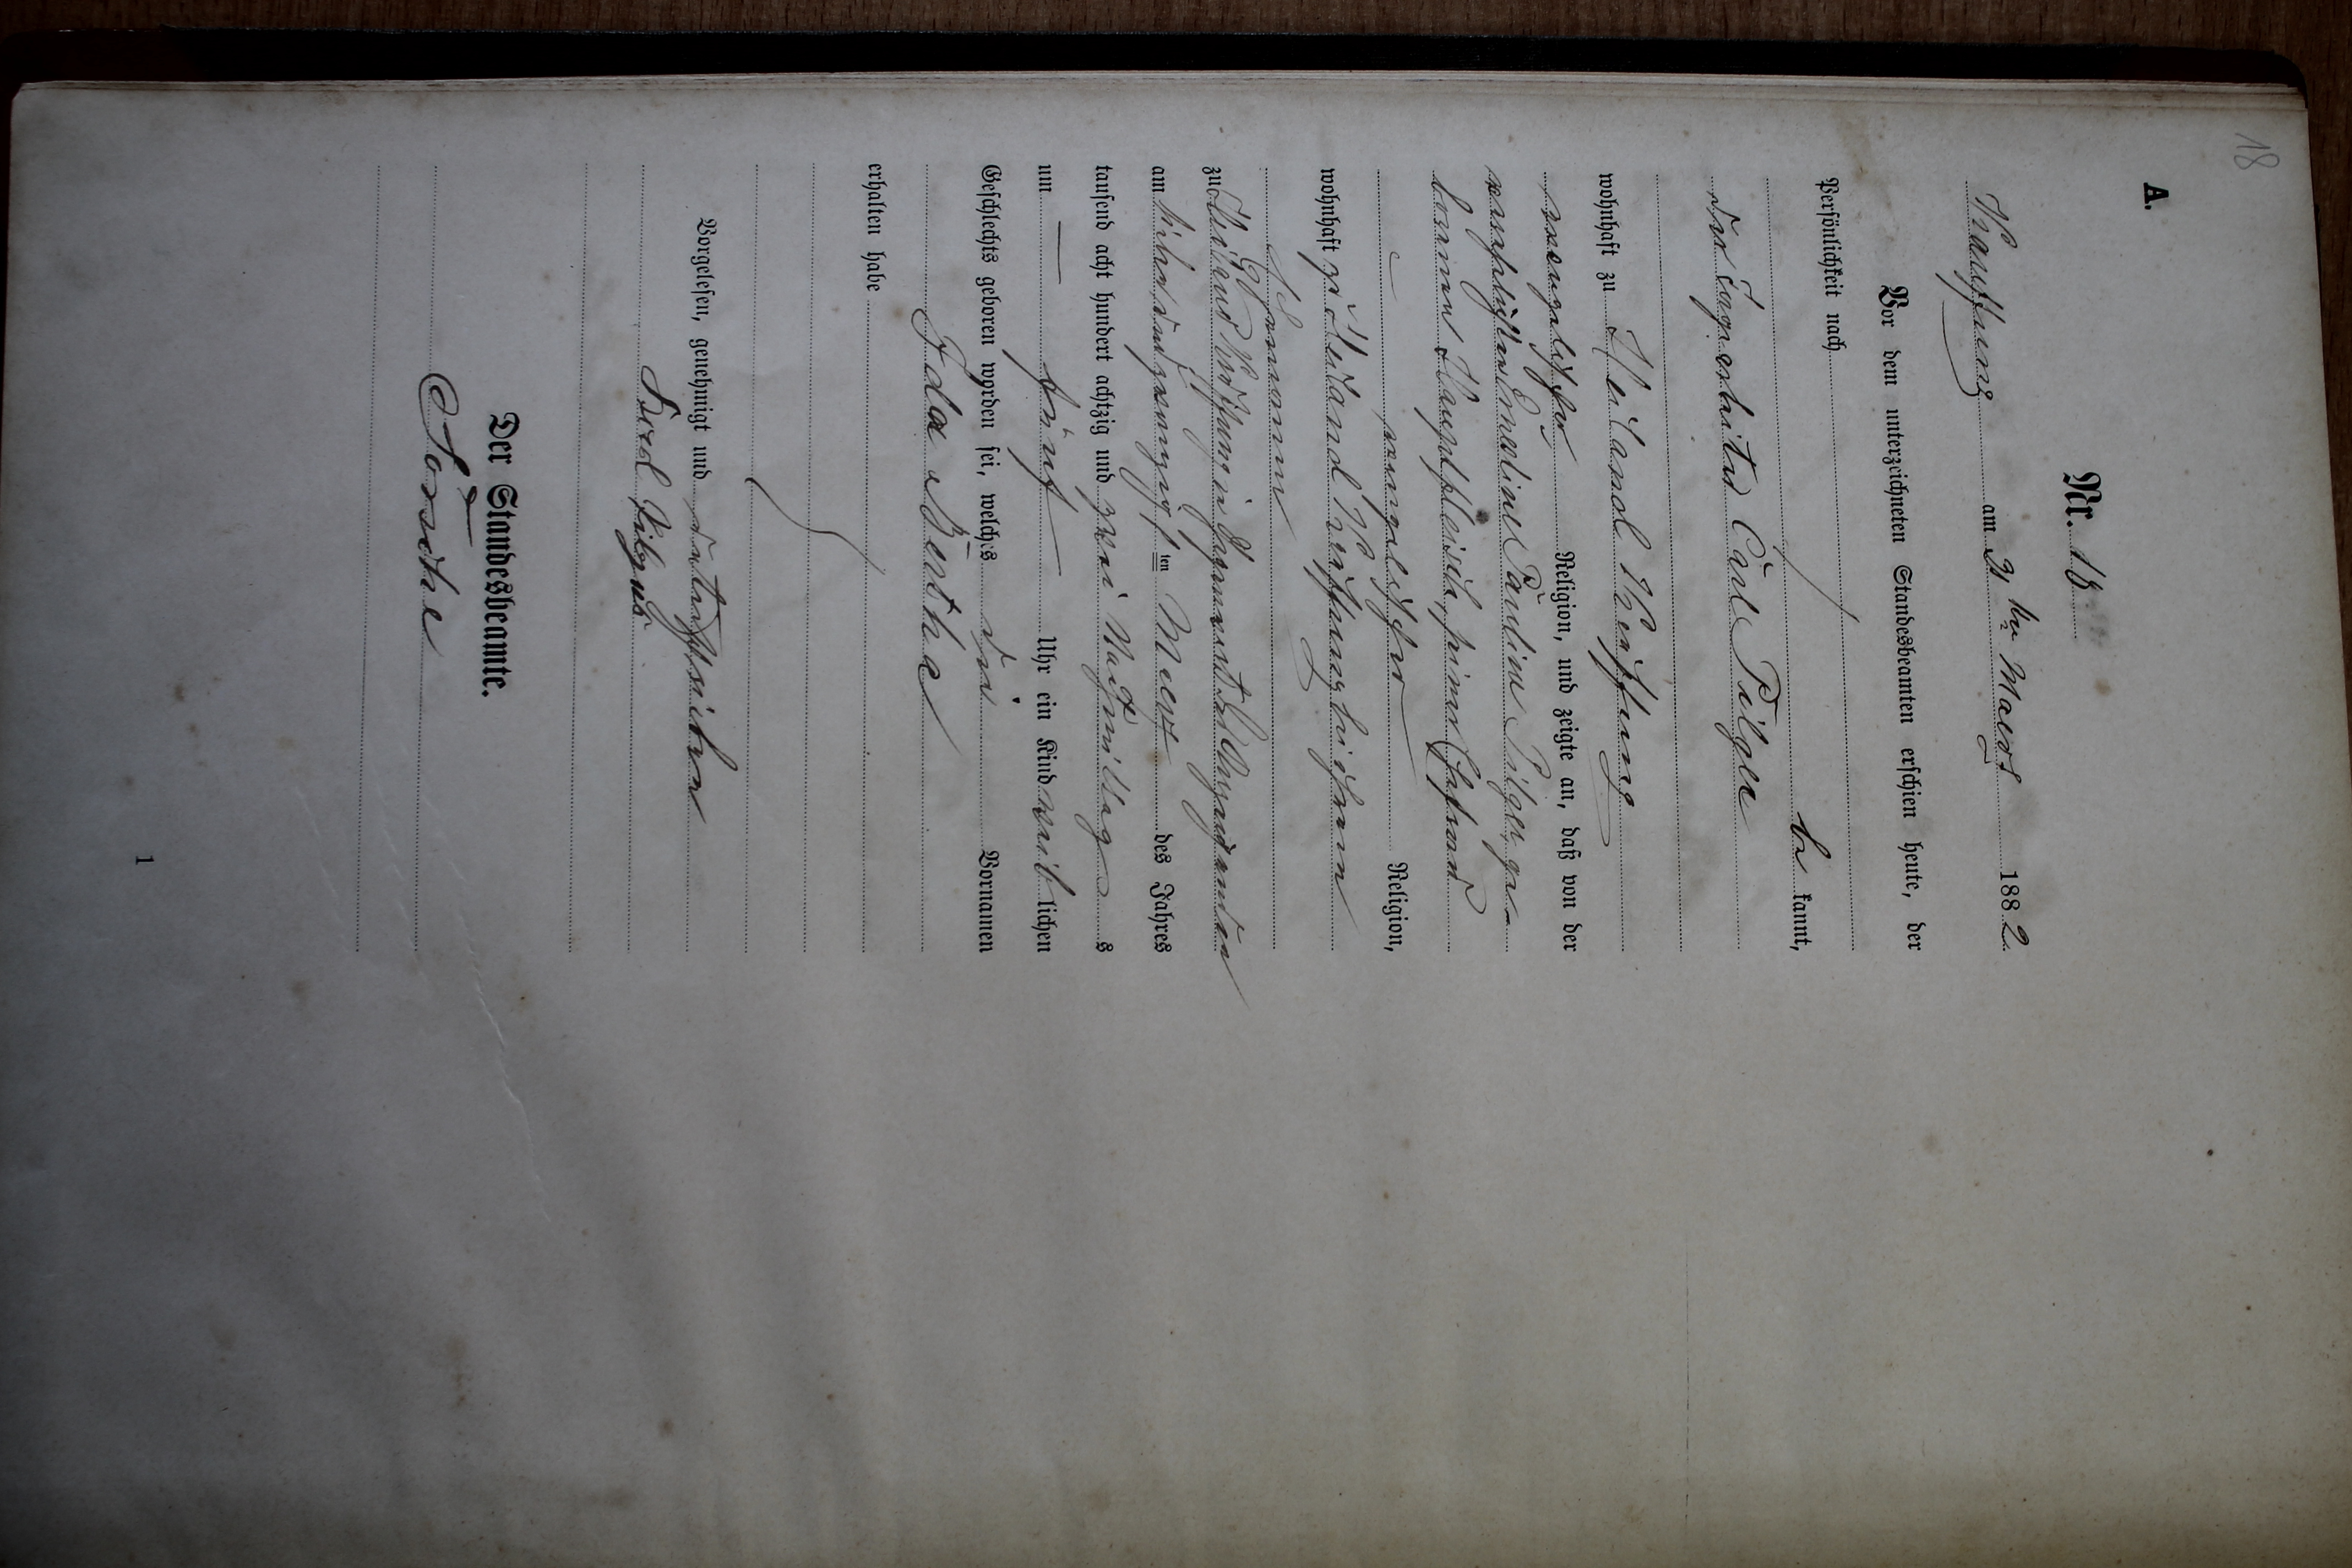 18
A.
Nr. 18
Kauffung am 31 ten Maerz 1882.
Vor dem unterzeichneten Standesbeamten erschien heute, der
Persönlichkeit nach
be kannt,
der Tagearbeiter Carl Pilger
wohnhaft zu Heiland Kauffung
evangelischer Religion, und zeigte an, daß von der
verehelichten Emeline Pauline Pilger ge-
borene Hauptfleisch, seiner Ehefrau
evangelischer Religion,
wohnhaft zu Heiland Kauffung bei ihrem
Ehemanne
zu Heiland Kauffung in
am sieben und zwanzigsten Maerz des Jahres
tausend acht hundert achtzig und zwei Nachmittags
um fünf Uhr ein Kind weiblichen
Geschlechts geboren worden sei, welches die Vornamen
Ida Bertha
erhalten habe
Vorgelesen, genehmigt und unterschrieben
Karl Pilger
Der Standesbeamte.
1